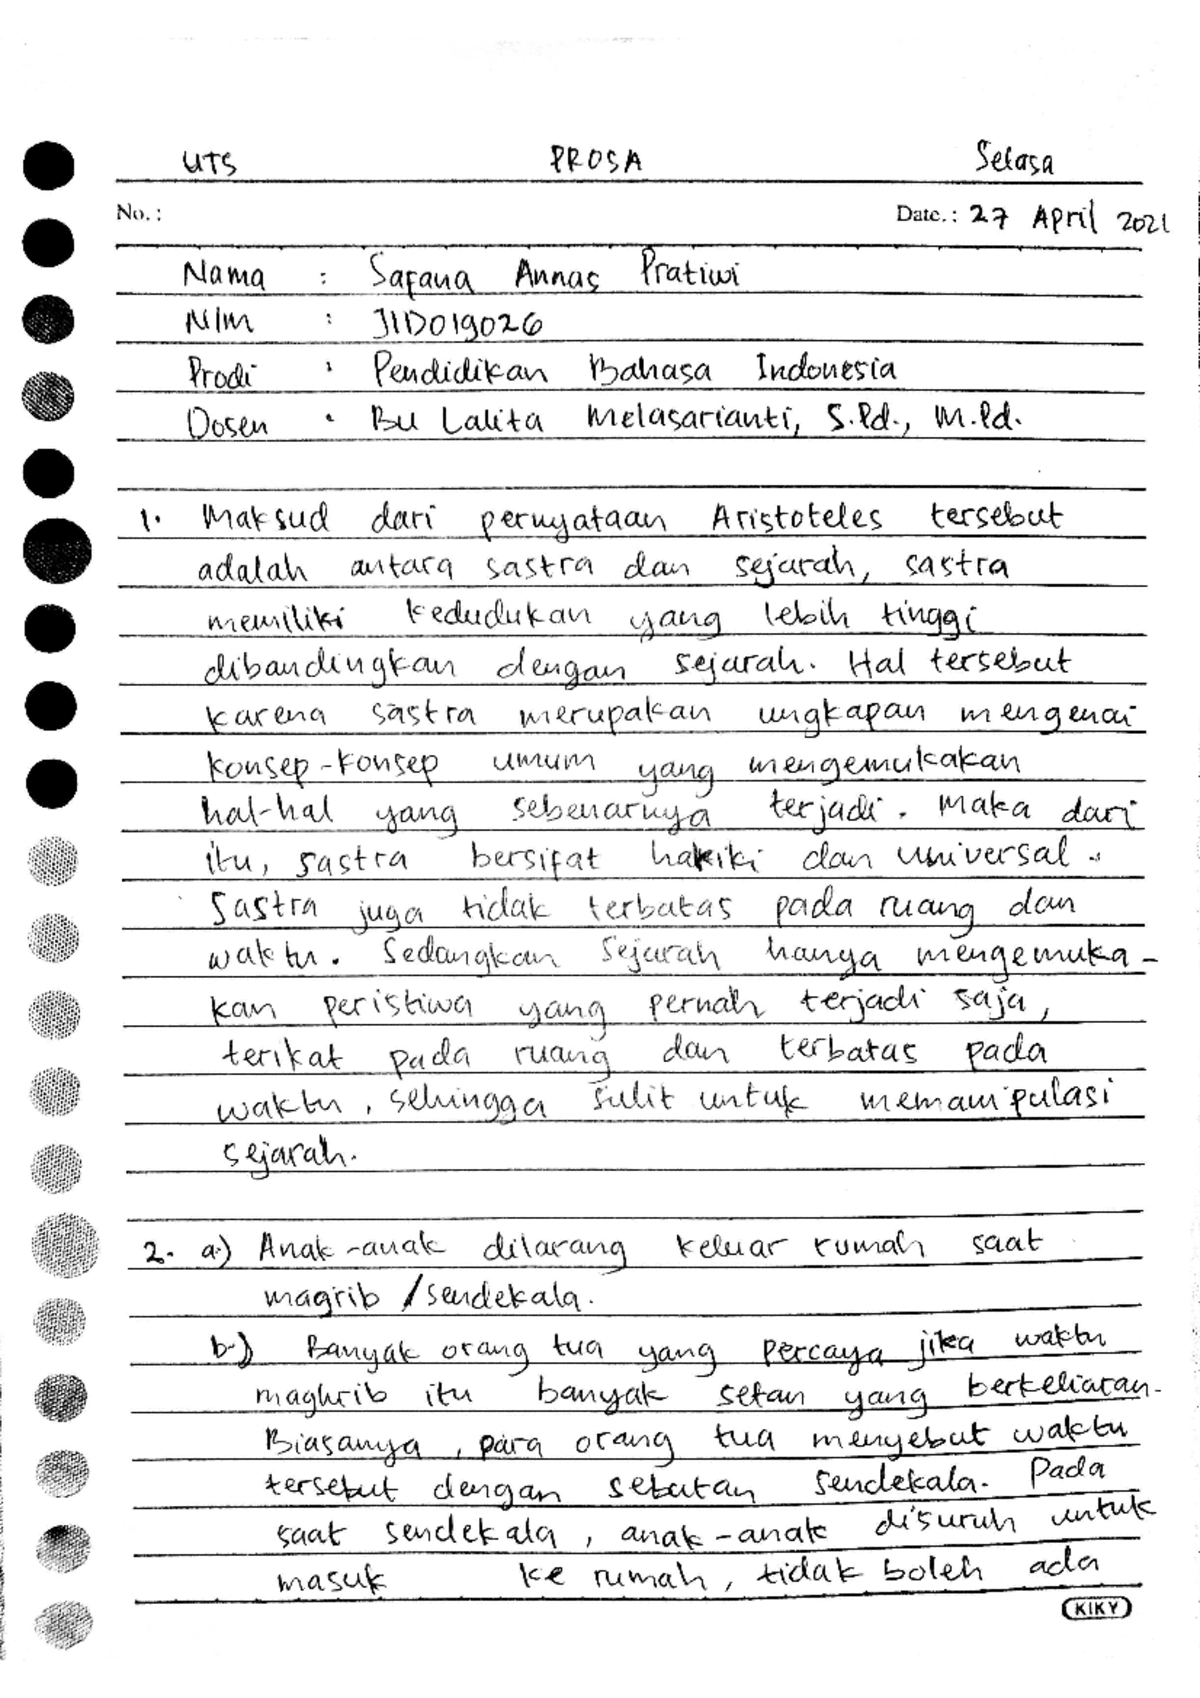 UTS PROSA Selasa
No. : Date. : 27 April 2021
Nama : Safana Annas Pratiwi
NIM : J1D019026
Prodi : Pendidikan Bahasa Indonesia
Dosen : Bu Lalita Melasarianti, S.Pd., M.Pd.
1. Maksud dari pernyataan Aristoteles tersebut
adalah antara sastra dan sejarah, sastra
memiliki kedudukan yang lebih tinggi
dibandingkan dengan sejarah. Hal tersebut
karena sastra merupakan ungkapan mengenai
konsep-konsep umum yang mengemukakan
hal-hal yang sebenarnya terjadi. Maka dari
itu, sastra bersifat hakiki dan universal.
Sastra juga tidak terbatas pada ruang dan
waktu. Sedangkan sejarah hanya mengemuka-
kan peristiwa yang pernah terjadi saja,
terikat pada ruang dan terbatas pada
waktu, sehingga sulit untuk memanipulasi
sejarah.
2. a.) Anak-anak dilarang keluar rumah saat
magrib /sendekala.
b.) Banyak orang tua yang percaya jika waktu
maghrib itu banyak setan yang berkeliaran.
Biasanya, para orang tua menyebut waktu
tersebut dengan sebutan sendekala. Pada
saat sendekala, anak-anak disuruh untuk
masuk ke rumah, tidak boleh ada
KIKY